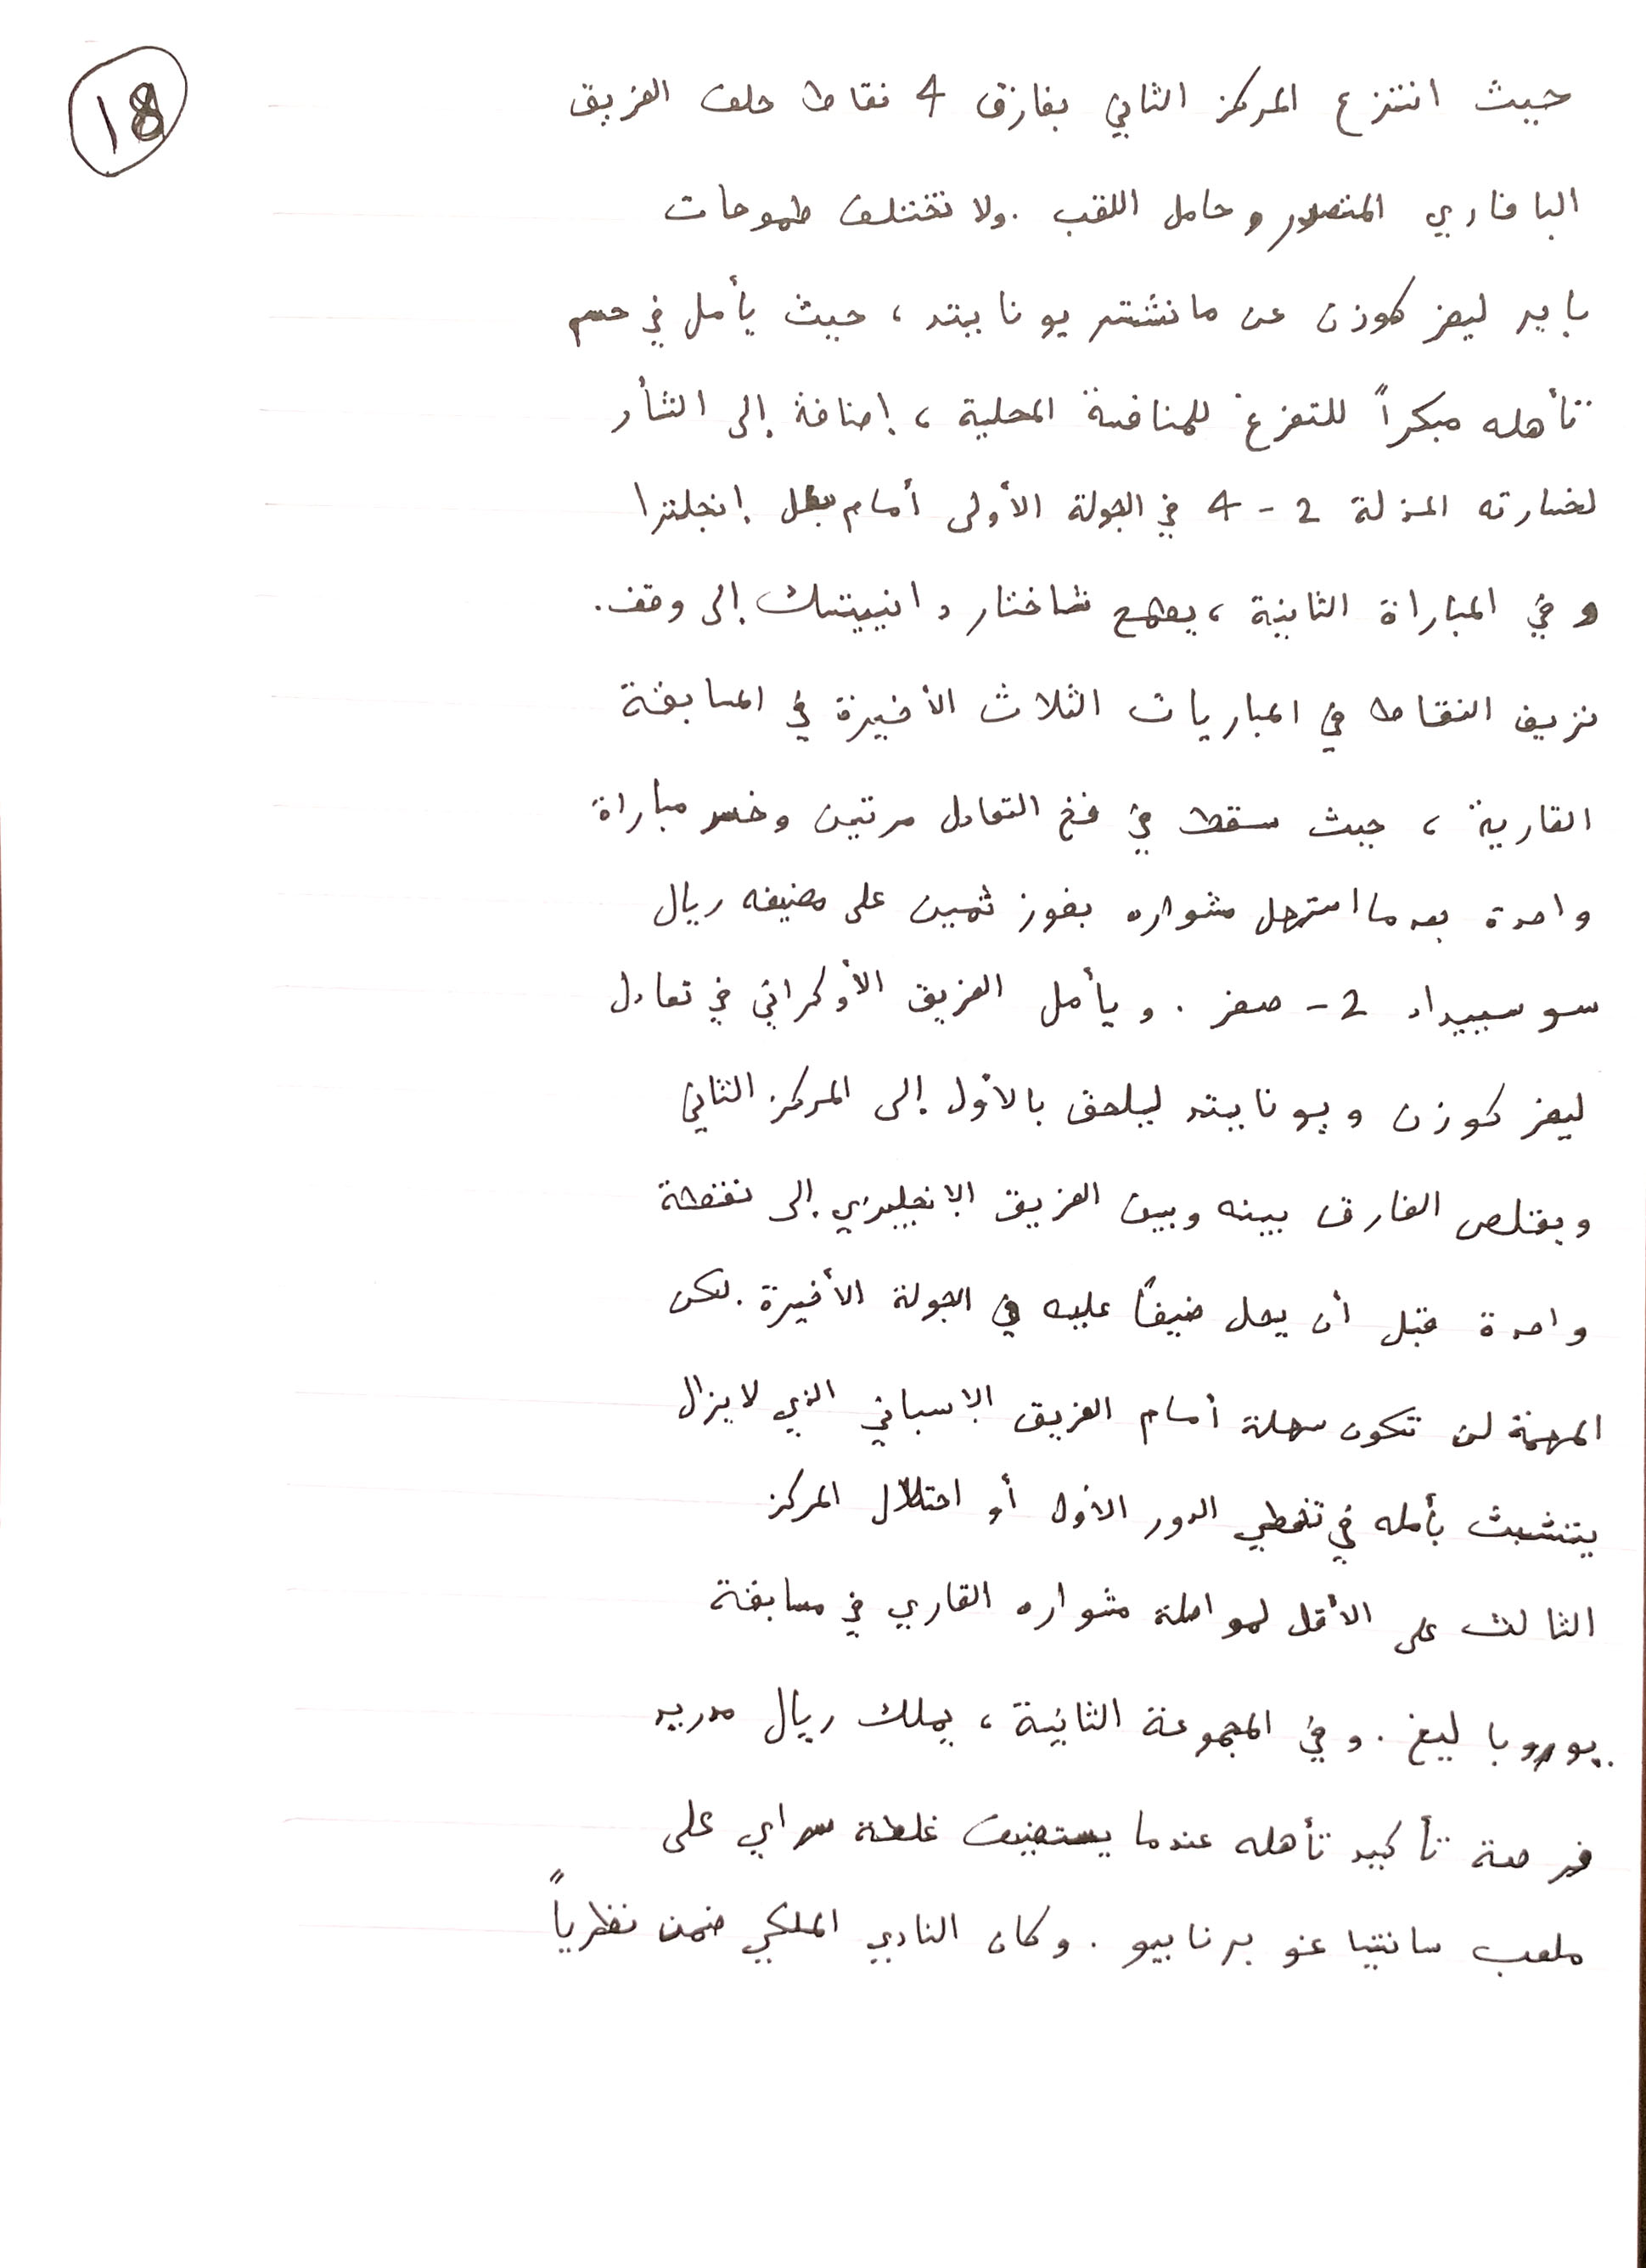 18
حيث انتزع المركز الثاني بفارق 4 نقاط خلف الفريق
البافاري المتصدر وحامل اللقب . ولا تختلف طموحات
باير ليفركوزن عن مانشستر يونايتد ، حيث يأمل في حسم
تأهله مبكراً للتفرغ للمنافسة المحلية ، إضافة إلى الثأر
لخسارته المذلة 2 - 4 في الجولة الأولى أمام بطل إنجلترا
و في المباراة الثانية ، يطمح شاختار دانييتسك إلى وقف .
نزيف النقاط في المباريات الثلاث الأخيرة في المسابقة
القارية ، حيث سقط في فخ التعادل مرتين وخسر مباراة
واحدة بعدما استهل مشواره بفوز ثمين على مضيفه ريال
سوسييداد 2 - صفر . و يأمل الفريق الأوكراني في تعادل
ليفركوزن ويونايتد ليلحق بالأول إلى المركز الثاني
ويقلص الفارق بينه وبين الفريق الإنجليزي إلى نقطة
واحدة قبل أن يحل ضيفاً عليه في الجولة الأخيرة . لكن
المهمة لن تكون سهلة أمام الفريق الإسباني الذي لا يزال
يتشبث بأمله في تخطي الدور الأول أو احتلال المركز
الثالث على الأقل لمواصلة مشواره القاري في مسابقة
يوروبا ليغ . و في المجموعة الثانية ، يملك ريال مدريد
فرصة تأكيد تأهله عندما يستضيف غلطة سراي على
ملعب سانتياغو برنابيو . وكان النادي الملكي ضمن نظرياً